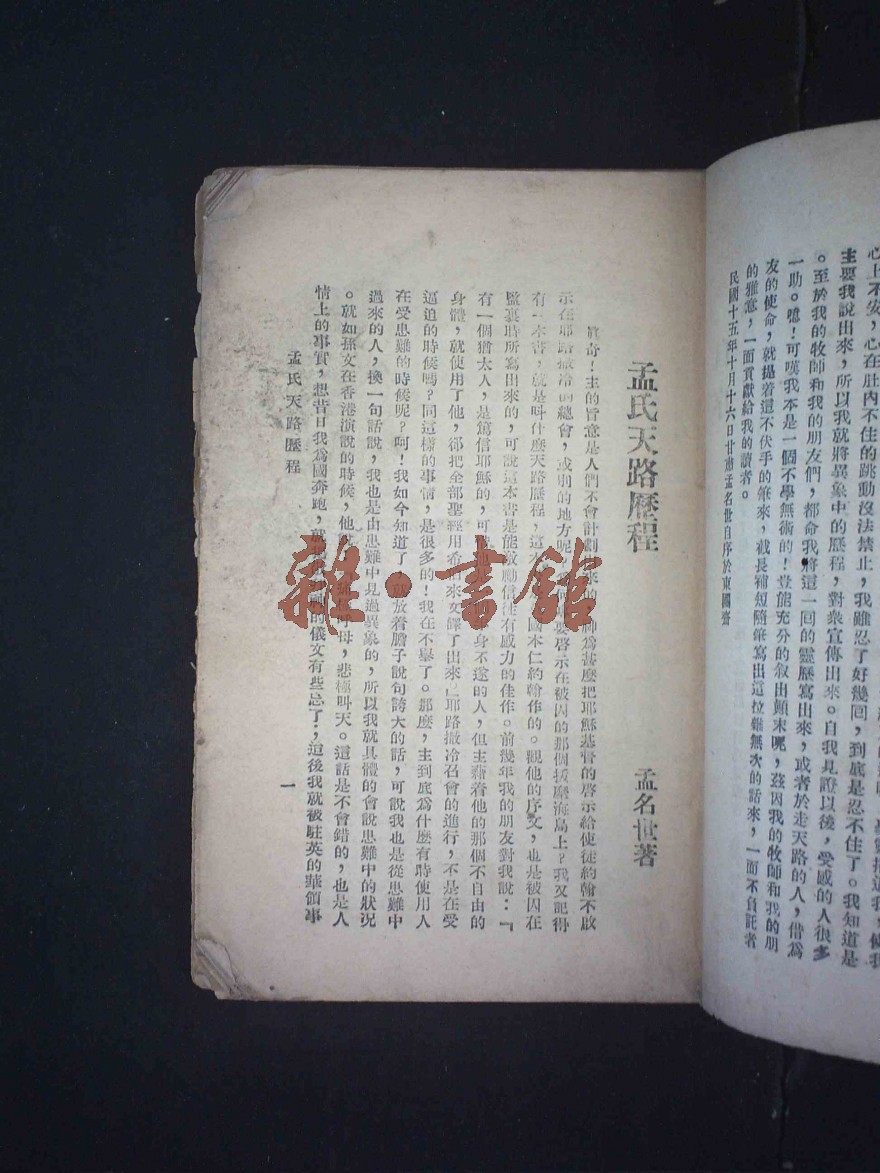 心上不安，心在肚內不住的跳動沒法禁止，我雖忍了好幾回，到底是忍不住了。我知道是
主要我說出來，所以我就將異象中的歷程，對衆宣傳出來。自我見證以後，受感的人很多
。至於我的牧師和我的朋友們，都命我將這一回的靈歷寫出來，或者於走天路的人，借爲
一助。噫！可嘆我本是一個不學無術的！豈能充分的叙出顛末呢，玆因我的牧師和我的朋
友的使命，就提着這不伏手的筆來，截長補短隨筆寫出這拉雜無次的話來，一面不負託者
的雅意，一面貢獻給我的讀者。
民國十五年十月十六日甘肅孟名世自序於東國齋
孟氏天路歷程
孟名世著
眞奇！主的旨意是人們不會計劃來的神爲甚麼把耶穌基督的啓示給使徒約翰不啟
示在耶路撒冷的總會，或別的地方呢，要啓示在被囚的那個拔摩海島上？我又記得
有一本書，就是叫什麼天路歷程，這本國本仁約翰作的。觀他的序文，也是被囚在
監裏時所寫出來的，可說這本書是能激勵信徒有感力的佳作。前幾年我的朋友對我說：『
有一個猶太人，是篤信耶穌的，可是他身不遂的人，但主藉着他的那個不自由的
身體，就使用了他，郤把全部聖經用希伯來文譯了出來』耶路撒冷召會的進行，不是在受
逼迫的時候嗎？同這樣的事情，是很多的！我在不舉了。那麼，主到底爲什麼有時使用人
在受患難的時候呢？呵！我如今知道了，就放着膽子說句誇大的話，可說我也是從患難中
過來的人，換一句話說，我也是由患難中見過異象的，所以我就具體的會說患難中的狀況
。就如孫文在香港演說的時候，他說：呼母，悲極呌天。這話是不會錯的，也是人
情上的事實，想昔日我爲國奔跑，就的儀文有些忘了，這後我就被駐英的華領事
孟氏天路歷程
一
雜·書館